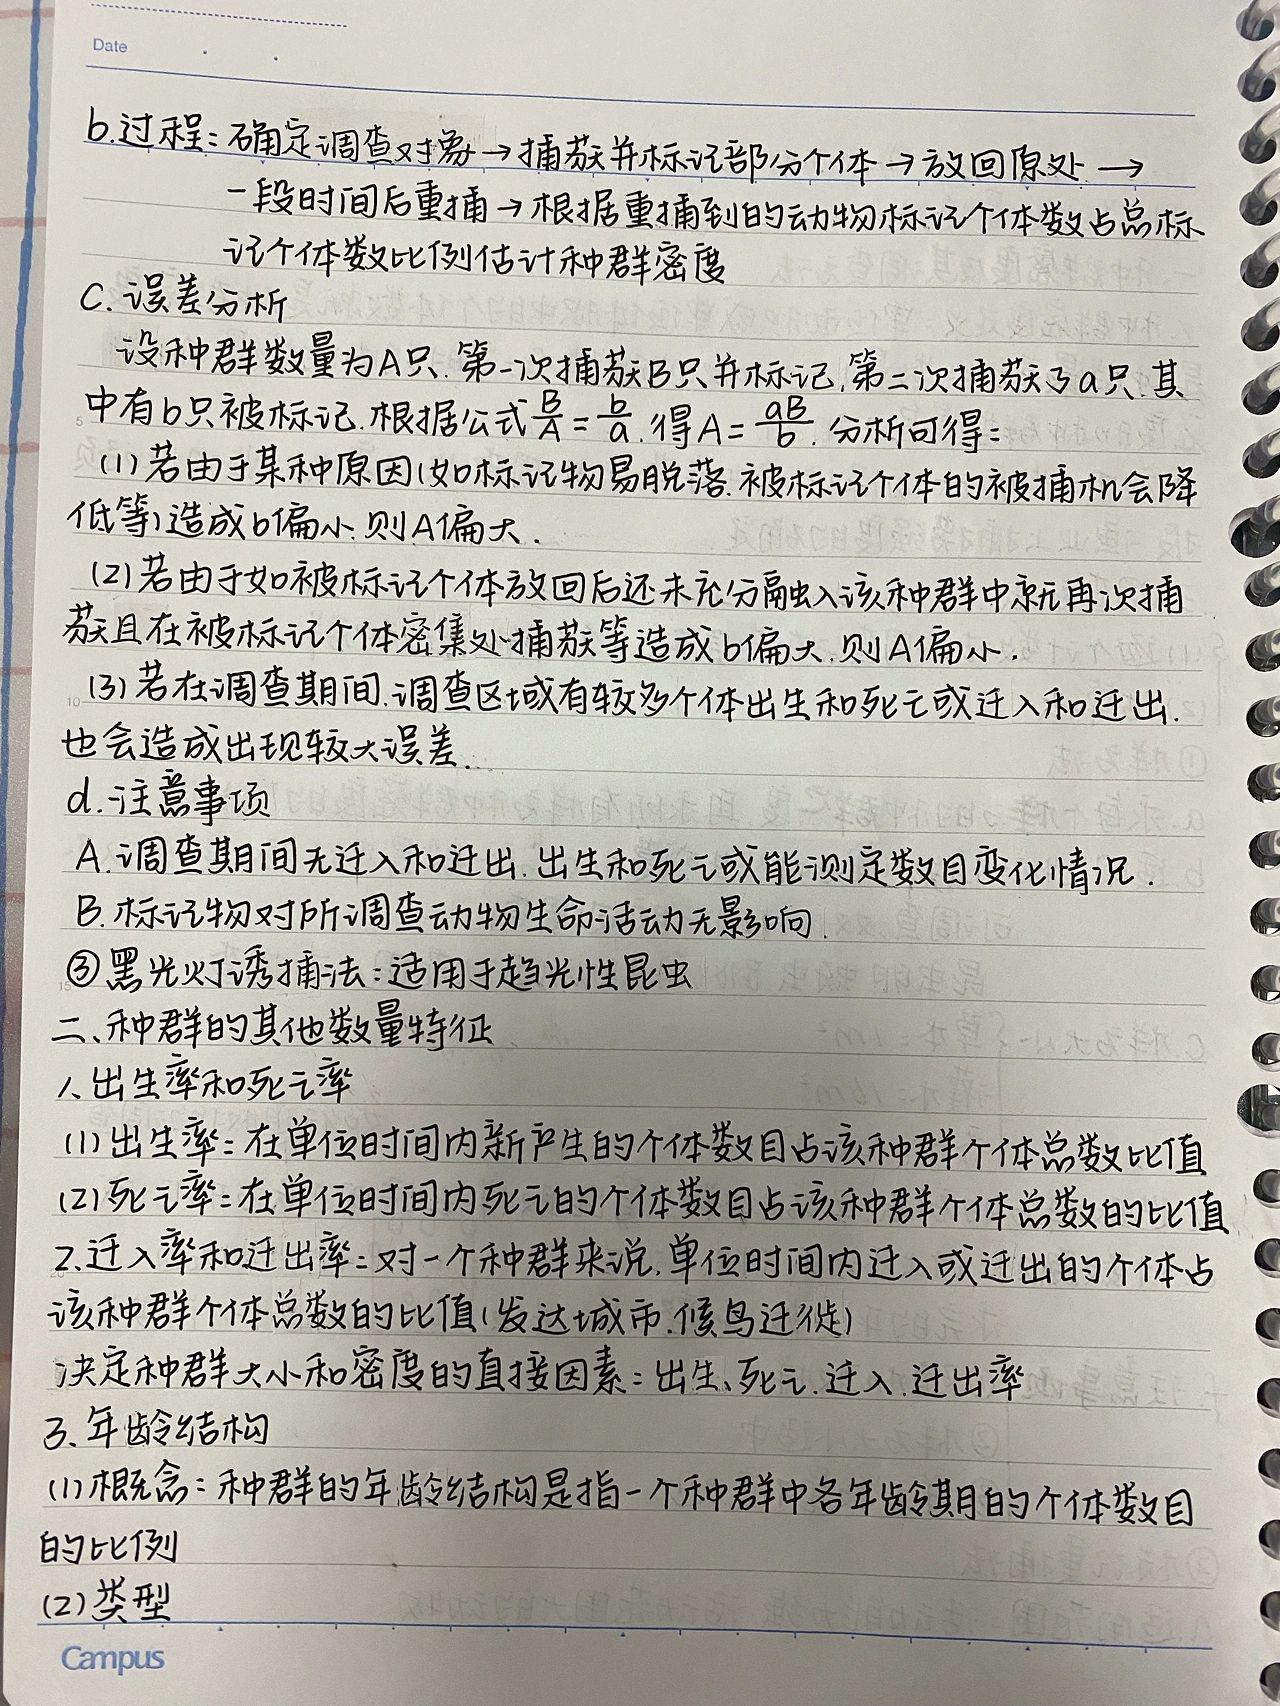 Date
b.过程:确定调查对象→捕获并标记部分个体→放回原处→
一段时间后重捕→根据重捕到的动物标记个体数占总标
记个体数比例估计种群密度
C.误差分析
设种群数量为A只.第一次捕获B只并标记,第二次捕获了a只.其
中有b只被标记.根据公式B/A=b/a.得A=aB/b.分析可得:
(1)若由于某种原因(如标记物易脱落.被标记个体的被捕机会降
低等)造成b偏小.则A偏大.
(2)若由于如被标记个体放回后还未充分融入该种群中就再次捕
获且在被标记个体密集处捕获等造成b偏大.则A偏小.
(3)若在调查期间.调查区域有较多个体出生和死亡或迁入和迁出.
也会造成出现较大误差.
d.注意事项
A.调查期间无迁入和迁出.出生和死亡或能测定数目变化情况.
B.标记物对所调查动物生命活动无影响.
③黑光灯诱捕法:适用于趋光性昆虫
二、种群的其他数量特征
1、出生率和死亡率
(1)出生率:在单位时间内新产生的个体数目占该种群个体总数比值
(2)死亡率:在单位时间内死亡的个体数目占该种群个体总数的比值
2.迁入率和迁出率:对一个种群来说.单位时间内迁入或迁出的个体占
该种群个体总数的比值(发达城市.候鸟迁徙)
决定种群大小和密度的直接因素:出生、死亡.迁入.迁出率
3、年龄结构
(1)概念:种群的年龄结构是指一个种群中各年龄期的个体数目
的比例
(2)类型
Campus